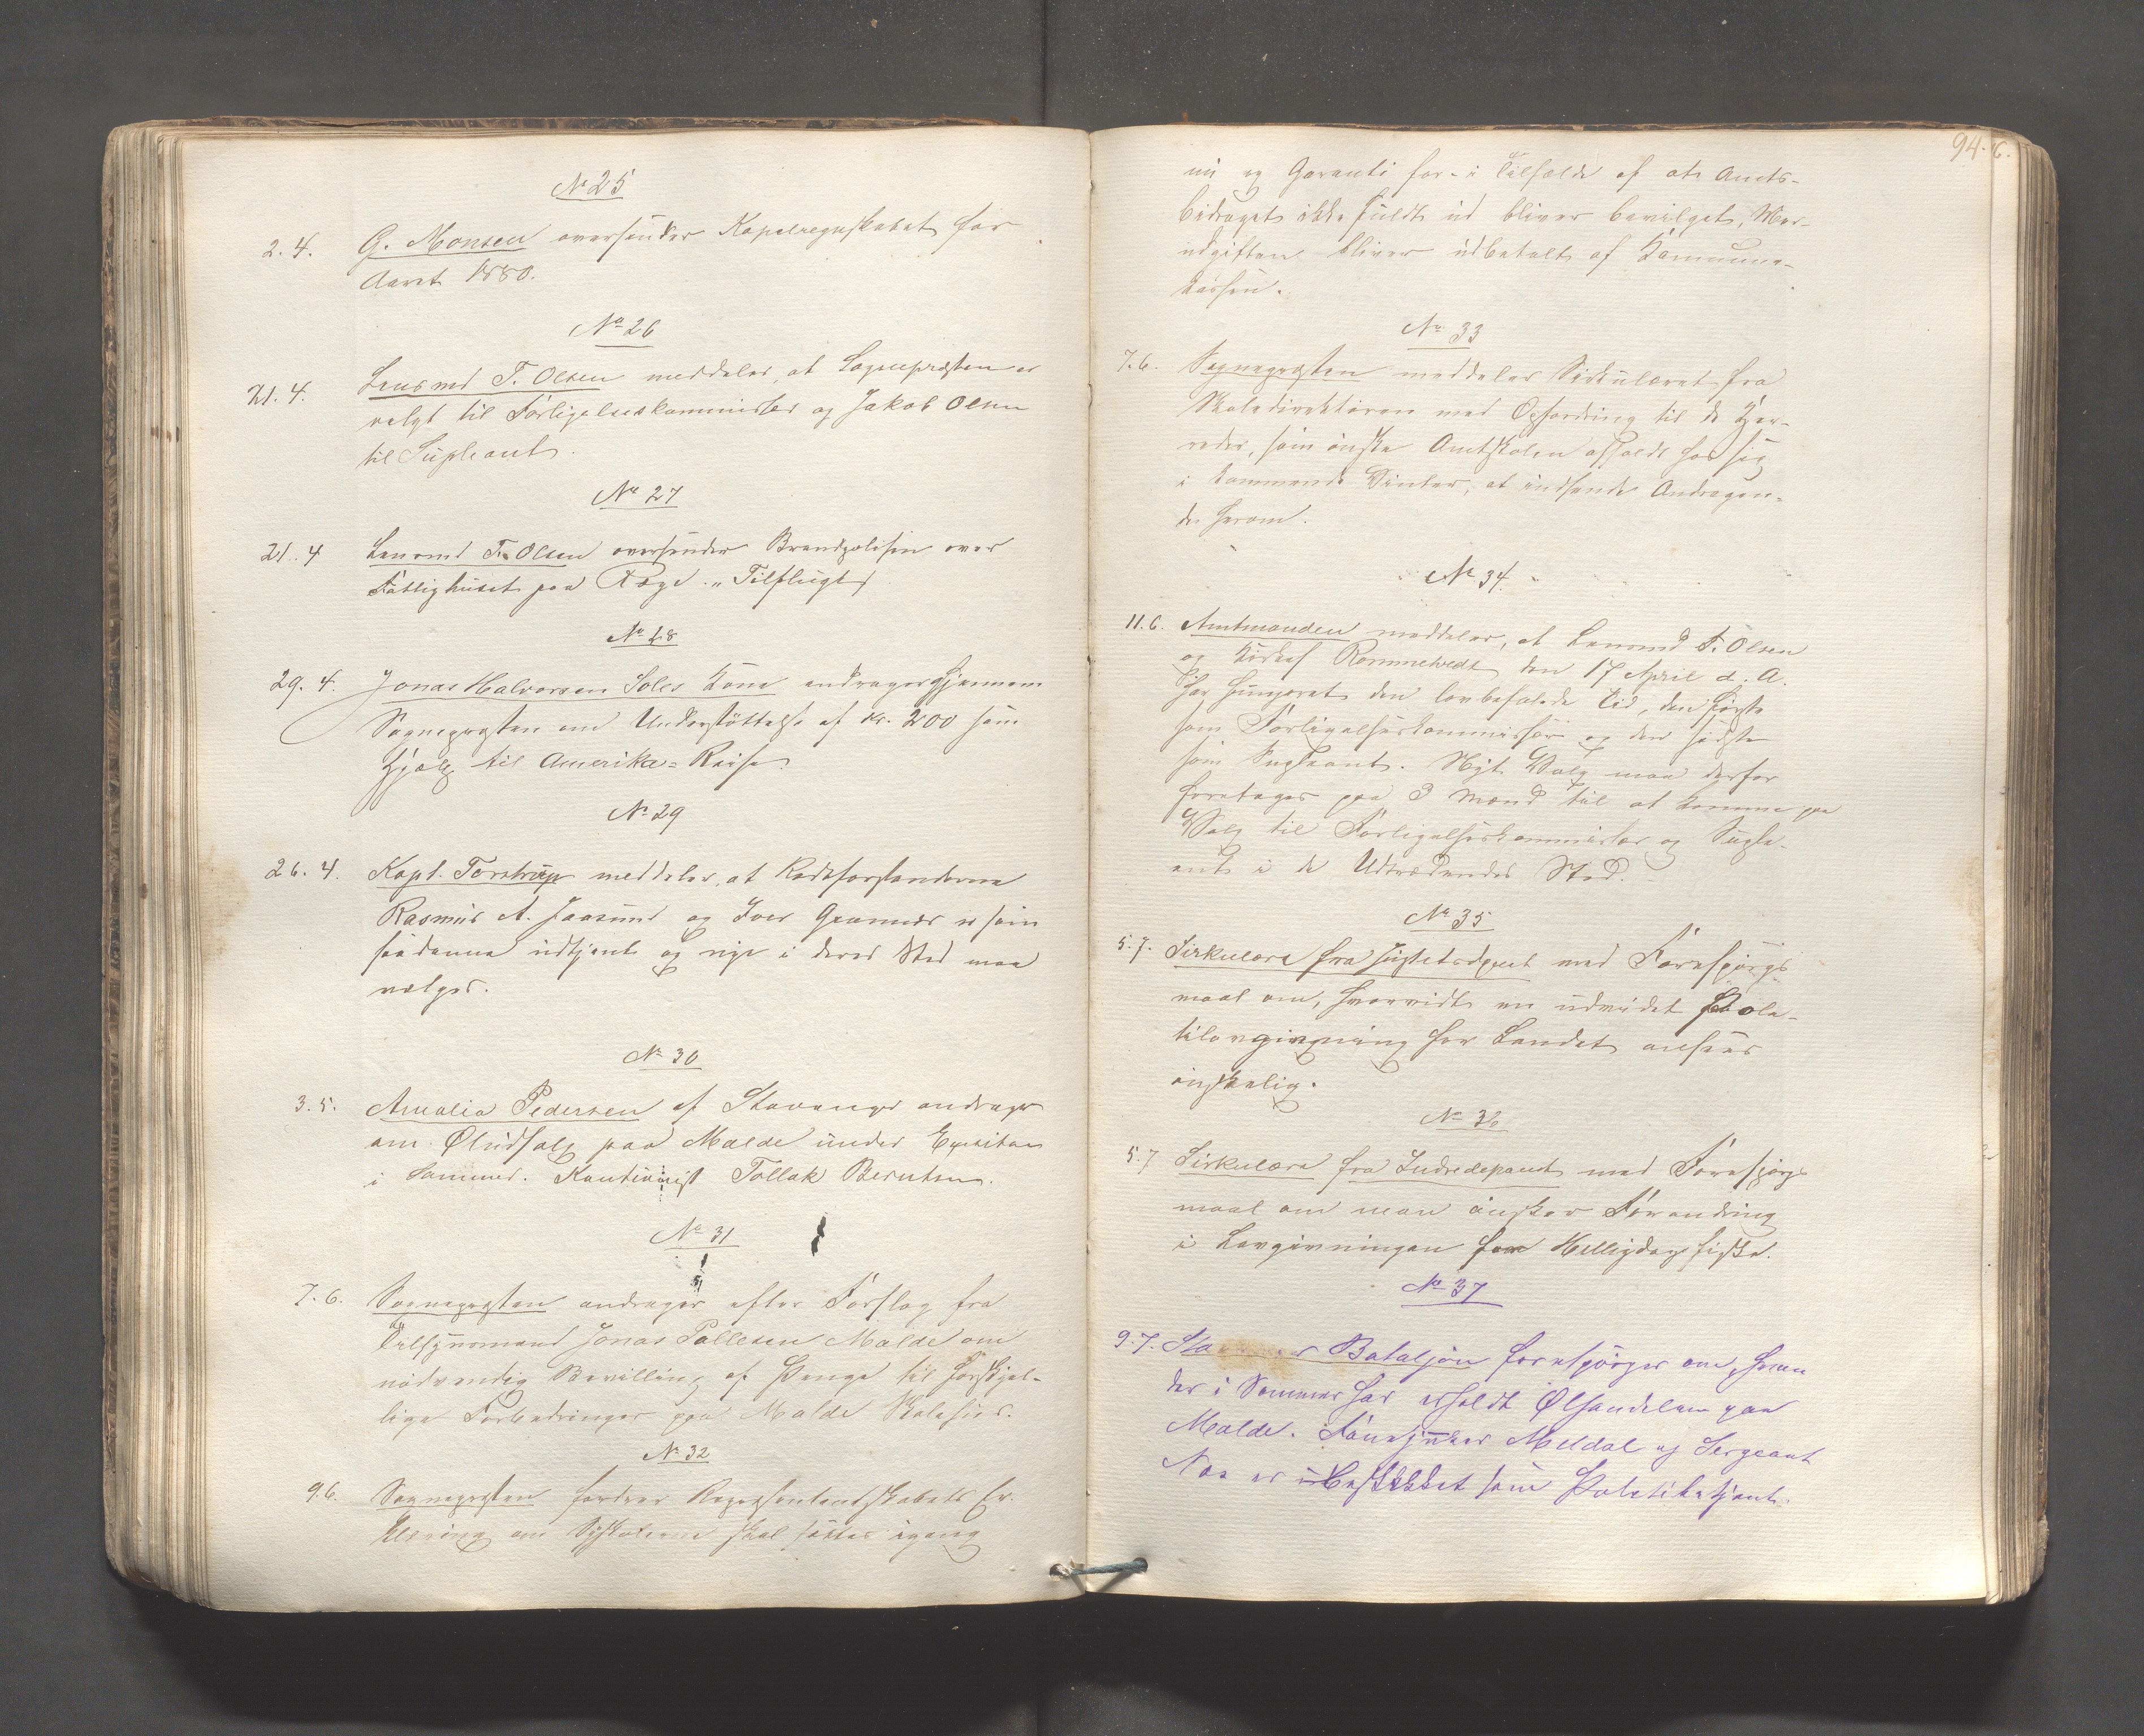 No 25
2. 4. G. Monsen oversender Kapelregnskabet for
Aaret 1880.
No 26
21. 4. Lensmd T. Olsen meddeler, at Sognepræsten er
valgt til Forligelseskommissær og Jakob Olsen
til Supleant.
No 27
21. 4 Lensmd T. Olsen oversender Brandpolisen over
Fattighuset paa Ræge "Tilflugt"
No 28
29. 4. Jonas Halvorsen Soles Kone andrager gjennem
Sognepræsten om Understöttelse af Kr. 200 som
Hjælp til Amerika-Reise
No 29
26. 4. Kapt. Torstrup meddeler, at Rodeforstanderne
Rasmus A. Jaasund og Iver Grannes er som
saadanne udtjent og nye i deres Sted maa
vælges.
No 30
3. 5. Amalia Pedersen af Stavanger andrager
om Øludsalg paa Malde under Exersitsen
i Sommer. Kautionist Tollak Berntsen.
No 31
7. 6. Sognepræsten andrager efter Forslag fra
Tilsynsmand Jonas Pallesen Malde om
nødvendig Bevilling af Penge til forskjel-
lige Forbedringer paa Malde Skolehus.
No 32
9.6. Sognepræsten fordrer Repræsentantskabets Er-
klæring om Syskolerne skal sættes igang
94.
nu og Garanti for - i Tilfælde af at Amts-
bidraget ikke fuldt ud bliver bevilget, Mer-
udgiften bliver udbetalt af Kommune-
kassen.
No 33
7.6. Sognepræsten meddeler Sirkulæret fra
Skoledirektören med Opfordring til de Her-
reder, som önske Amtskolen afholdt hos sig
i kommende Vinter, at indsende Andragen-
de herom.
No 34.
11.6. Amtmanden meddeler, at Lensmd T. Olsen
og Kirkes. Rommetvedt den 17 April d. A.
har fungeret den lovbefalede Tid, den første
som Forligelseskommissær og den sidste
som Supleant. Nyt Valg maa derfor
foretages paa 3 Mænd til at komme paa
Valg til Forligelseskommissær og Suple-
ant i de Udtrædendes Sted.
No 35
5.7. Sirkulære fra Justitsdpmt med Forespörgs-
maal om, hvorvidt en udvidet
for Landet ansees
önskelig.
No 36
5.7 Sirkulære fra Indredepamt med Forespörgs-
maal om man önsker Forandring
i Lovgivningen for Helligdagsfiske.
No 37
9.7. Bataljon forespörger om, hvem
der i Sommer har erholdt Ølhandelen paa
Malde. Fanejunker Meldal og Sergeant
Næs er beskikket som Politibetjent.